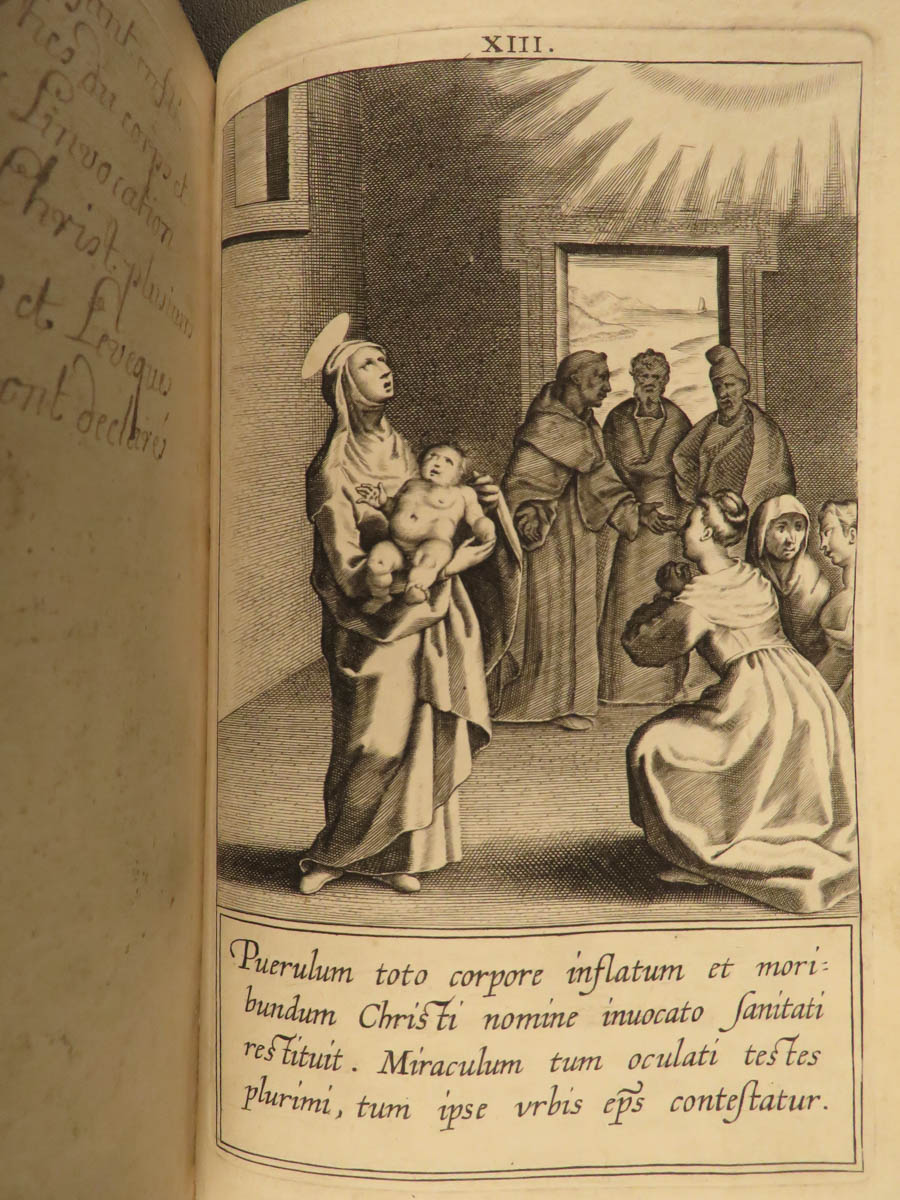 du corps et
L'invocation
Christ. plusieurs
et Leveque
ont declaré
XIII.
Puerulum toto corpore inflatum et mori=
bundum Christi nomine inuocato ſanitati
restituit. Miraculum tum oculati testes
plurimi, tum ipse vrbis ep̃s conteſtatur.